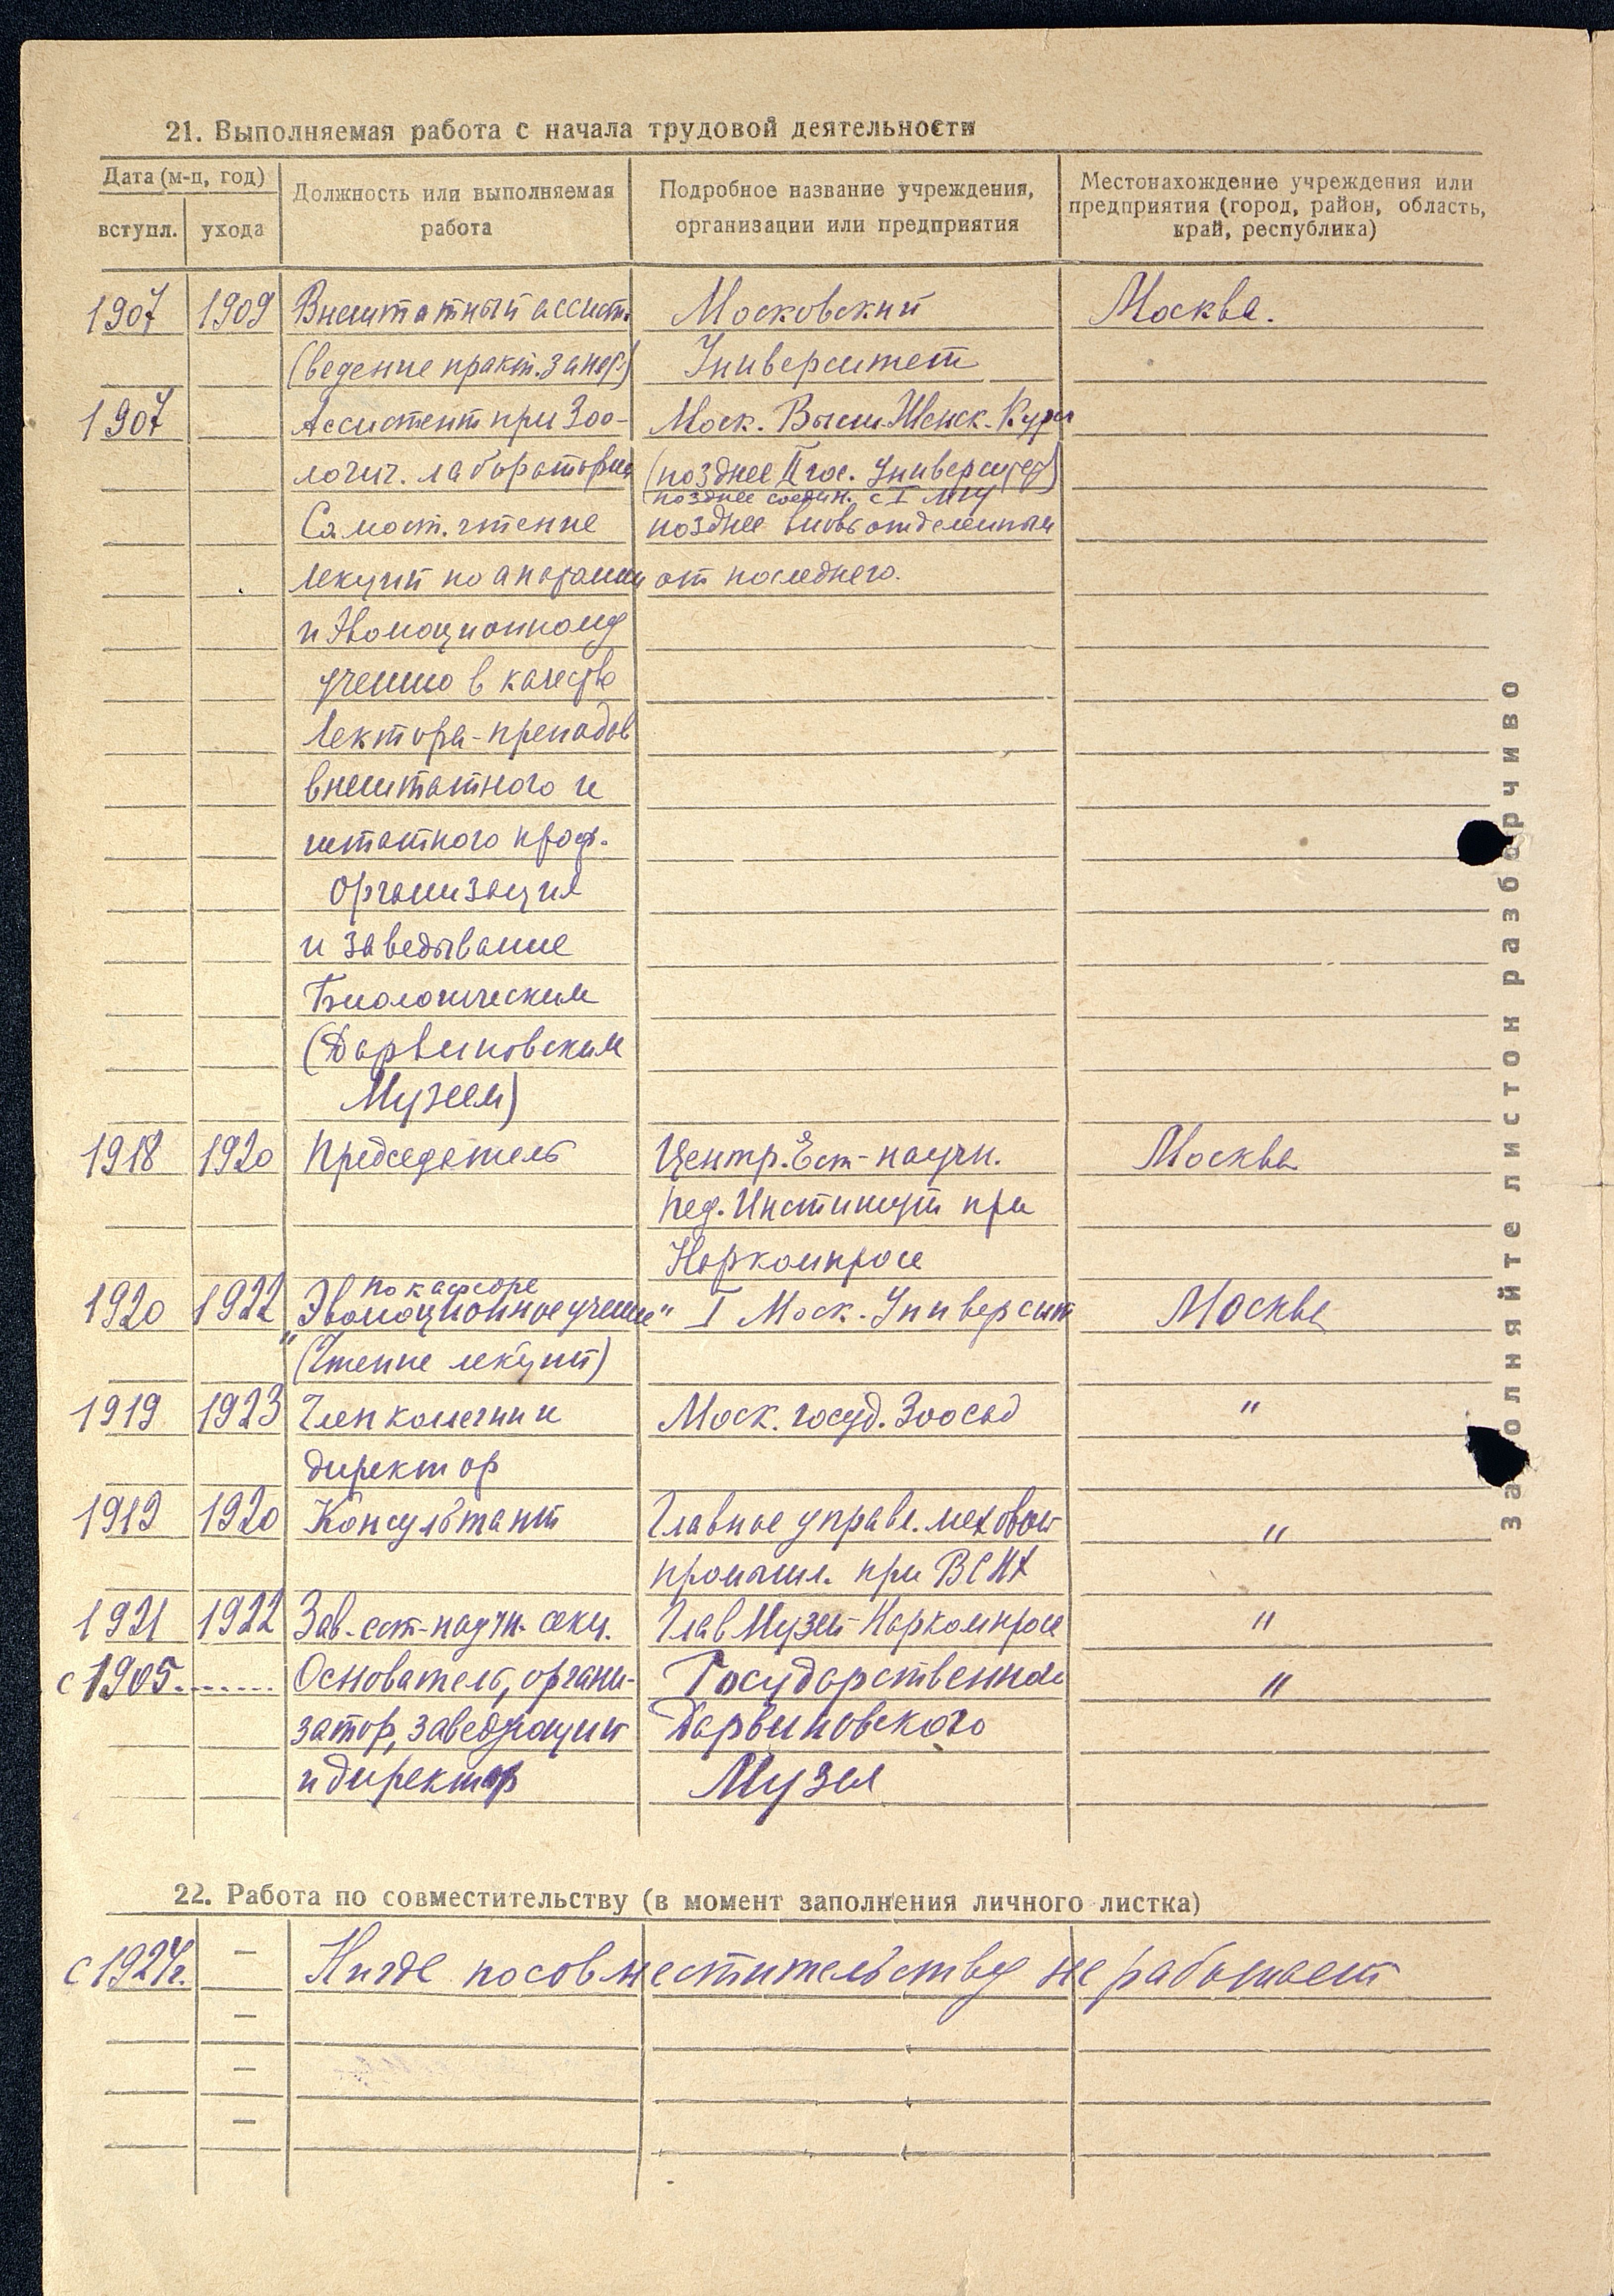 21. Выполняемая работа с начала трудовой деятельности
Дата (м-ц, год)
вступл. ухода
Должность или выполняемая
работа
Подробное название учреждения,
организации или предприятия
Местонахождение учреждения или
предприятия (город, район, область,
край, республика)
1907 1909 Внештатный ассист. Московский Москва.
(ведение практ. занят.) Университет
1907 Ассистент при Зоо- Моск. Высш. Женск. Курс
логич. лаборатории (позднее II гос. Университет)
позднее соедин. с I МГУ
Самост. чтение позднее вновь отделенным
лекций по анатомии от последнего.
и Эволюционному
учению в качестве
Лектора-преподов
внештатного и
штатного проф.
Организация
и заведывание
Биологическим
(Дарвиновским
Музеем)
1918 1920 Председатель Центр. Ест-научн. Москва
пед. Институт при
Наркомпросе
по кафедре
1920 1922 "Эволюционное учение" I Моск. Университ Москва
(Чтение лекций)
1919 1923 Член коллегии и Моск. госуд. Зоосад "
директор
1919 1920 Консультант Главное управл. меховой "
промышл. при ВСНХ
1921 1922 Зав. ест-научн. секц. Глав Музей Наркомпросе "
с 1905....... Основатель, органи- Государственного "
затор, заведующий Дарвиновского
и директор Музея
22. Работа по совместительству (в момент заполнения личного листка)
с 1924г. — Нигде по совместительству не работает
—
—
—
заполняйте листок разборчиво